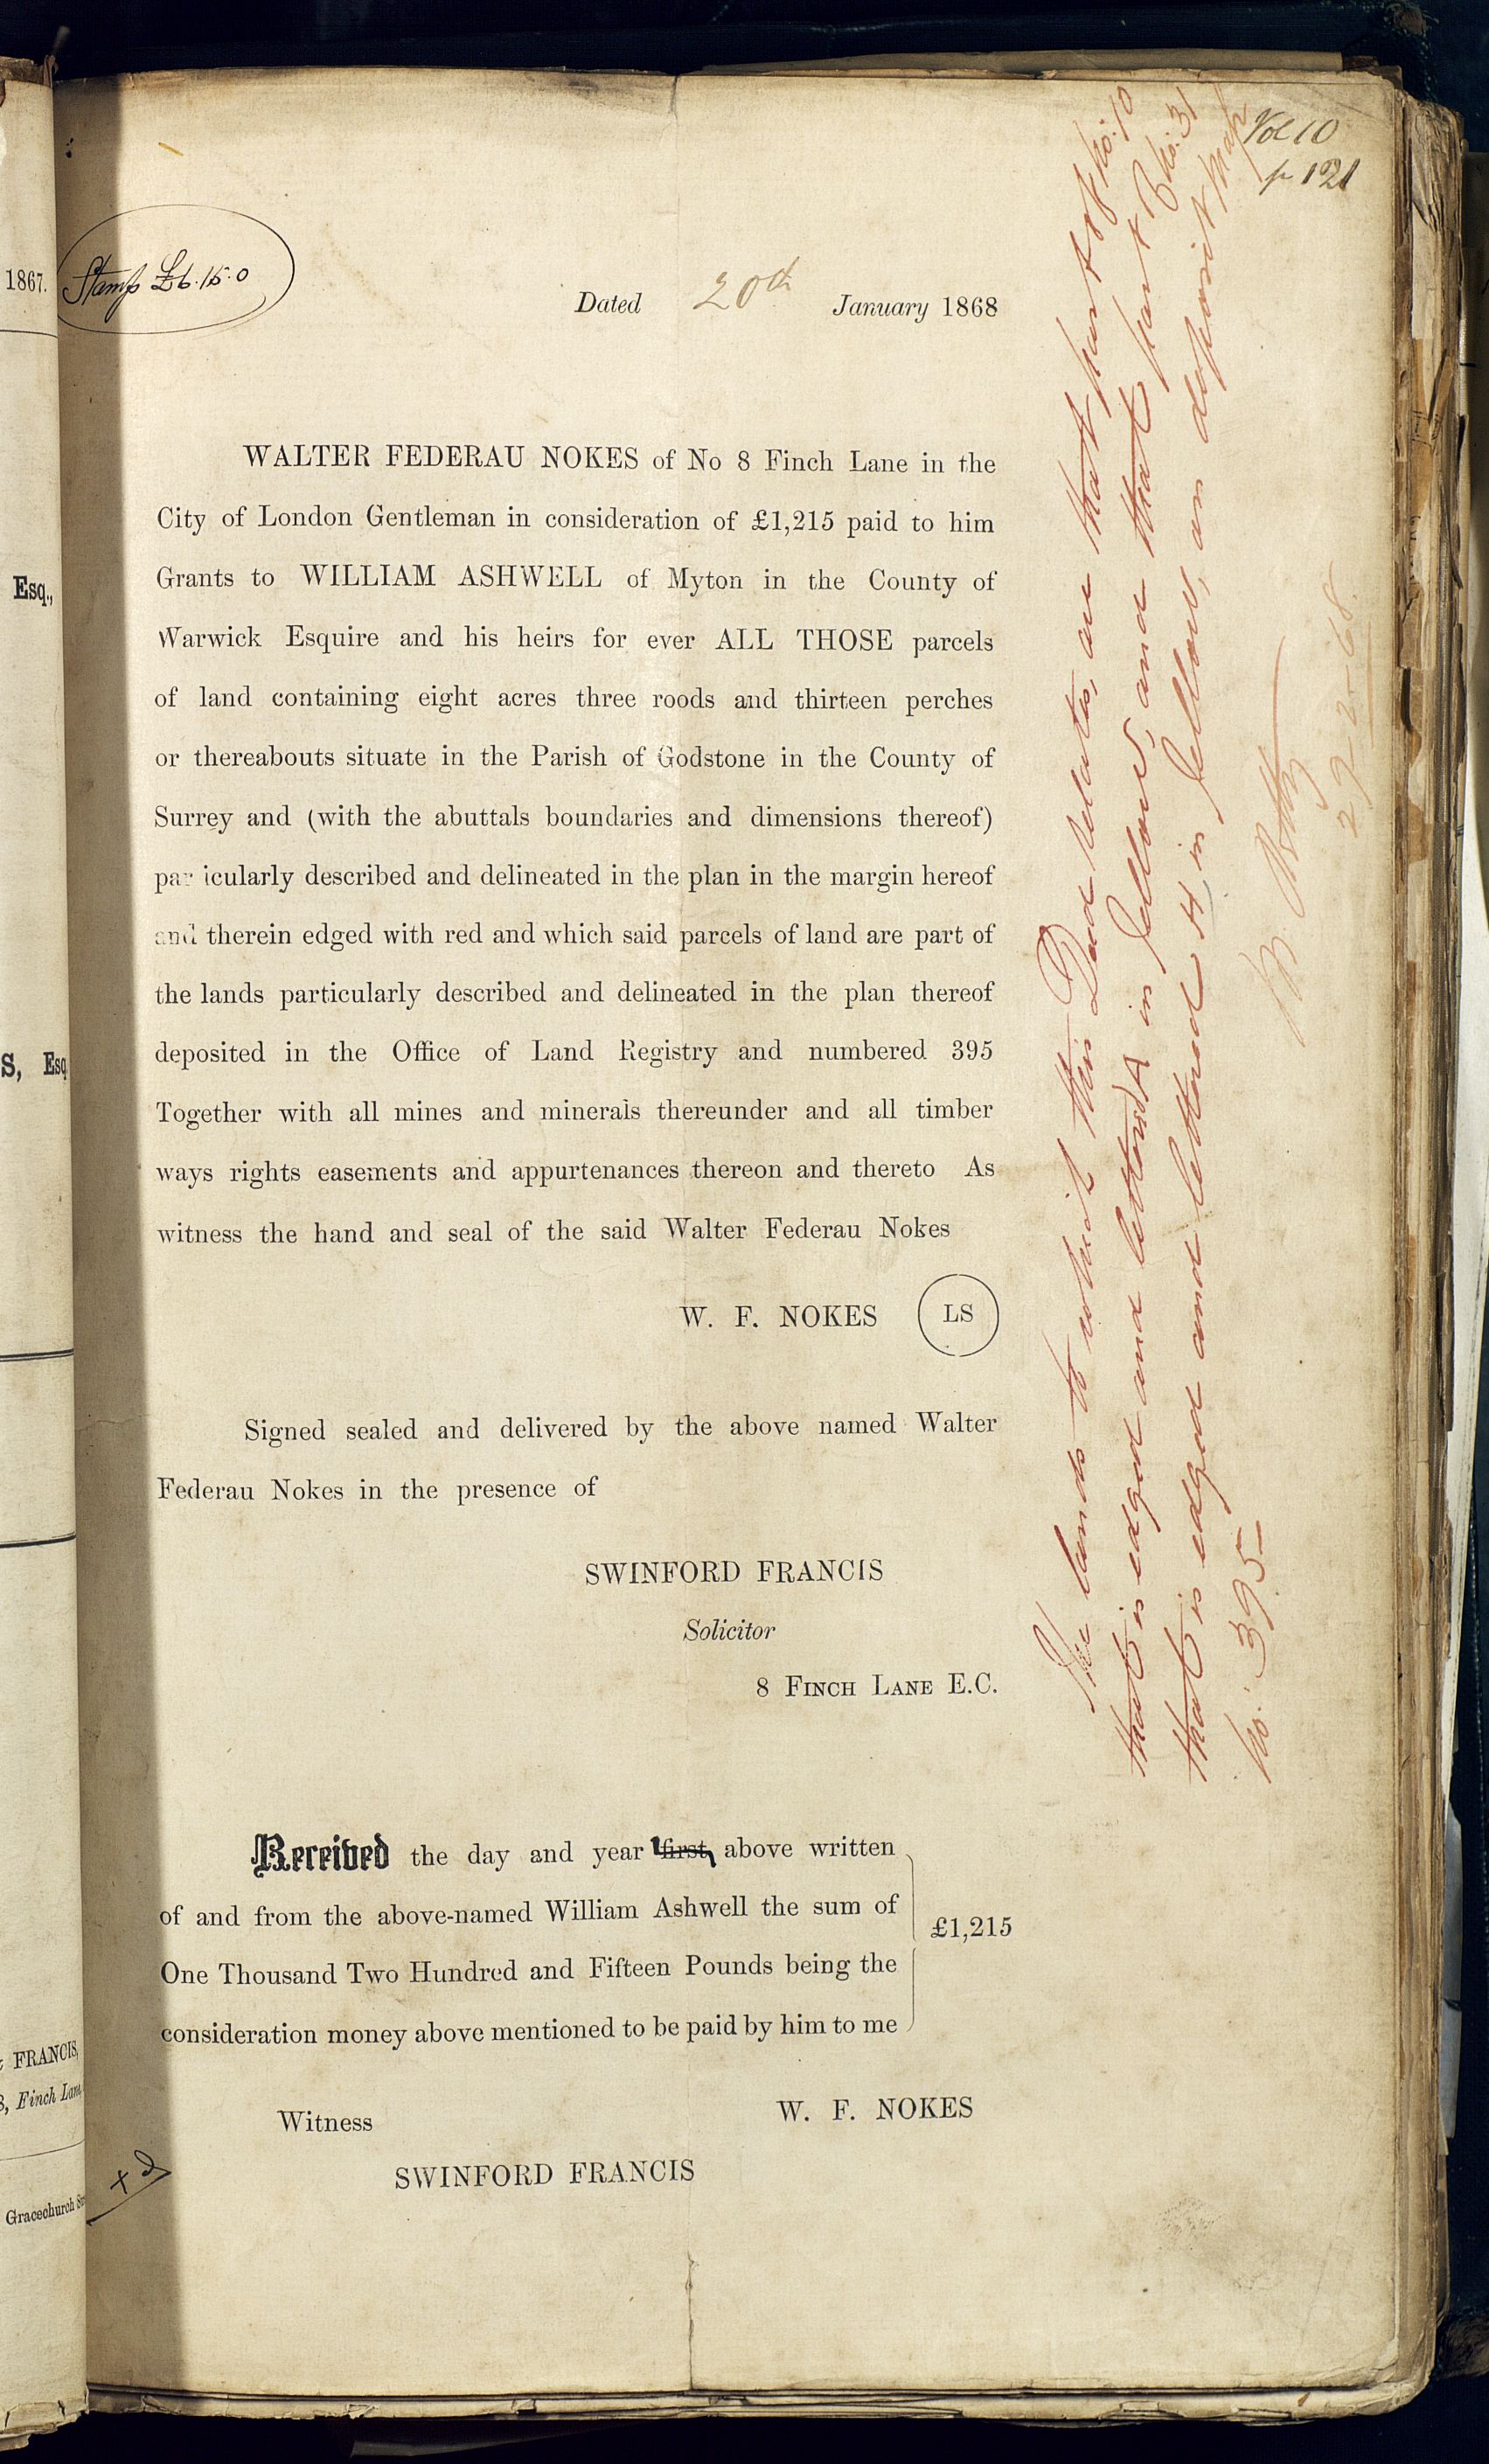 Vol 10
p 121
1867.
Stamp £6.15.0
Dated 20th January 1868
WALTER FEDERAU NOKES of No 8 Finch Lane in the
City of London Gentleman in consideration of £1,215 paid to him
Grants to WILLIAM ASHWELL of Myton in the County of
Warwick Esquire and his heirs for ever ALL THOSE parcels
of land containing eight acres three roods and thirteen perches
or thereabouts situate in the Parish of Godstone in the County of
Surrey and (with the abuttals boundaries and dimensions thereof)
par icularly described and delineated in the plan in the margin hereof
and therein edged with red and which said parcels of land are part of
the lands particularly described and delineated in the plan thereof
deposited in the Office of Land Registry and numbered 395
Together with all mines and minerals thereunder and all timber
ways rights easements and appurtenances thereon and thereto As
witness the hand and seal of the said Walter Federau Nokes
W. F. NOKES LS
Signed sealed and delivered by the above named Walter
Federau Nokes in the presence of
SWINFORD FRANCIS
Solicitor
8 FINCH LANE E.C.
Received the day and year first above written
of and from the above-named William Ashwell the sum of
One Thousand Two Hundred and Fifteen Pounds being the
consideration money above mentioned to be paid by him to me
£1,215
W. F. NOKES
Witness
SWINFORD FRANCIS
The lands to which this Deed relates, are that part of No. 10
that is edged and lettered A in yellow, and that part of No. 31
that is edged and lettered H in yellow, on deposit Map
No. 395
29-2-68.
Esq.,
S, Esq
FRANCIS,
8, Finch Lane,
Gracechurch